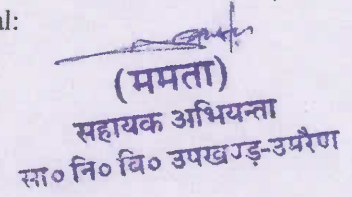 al:
(ममता)
सहायक अभियन्ता
सा० नि० वि० उपखण्ड़-उमरैण